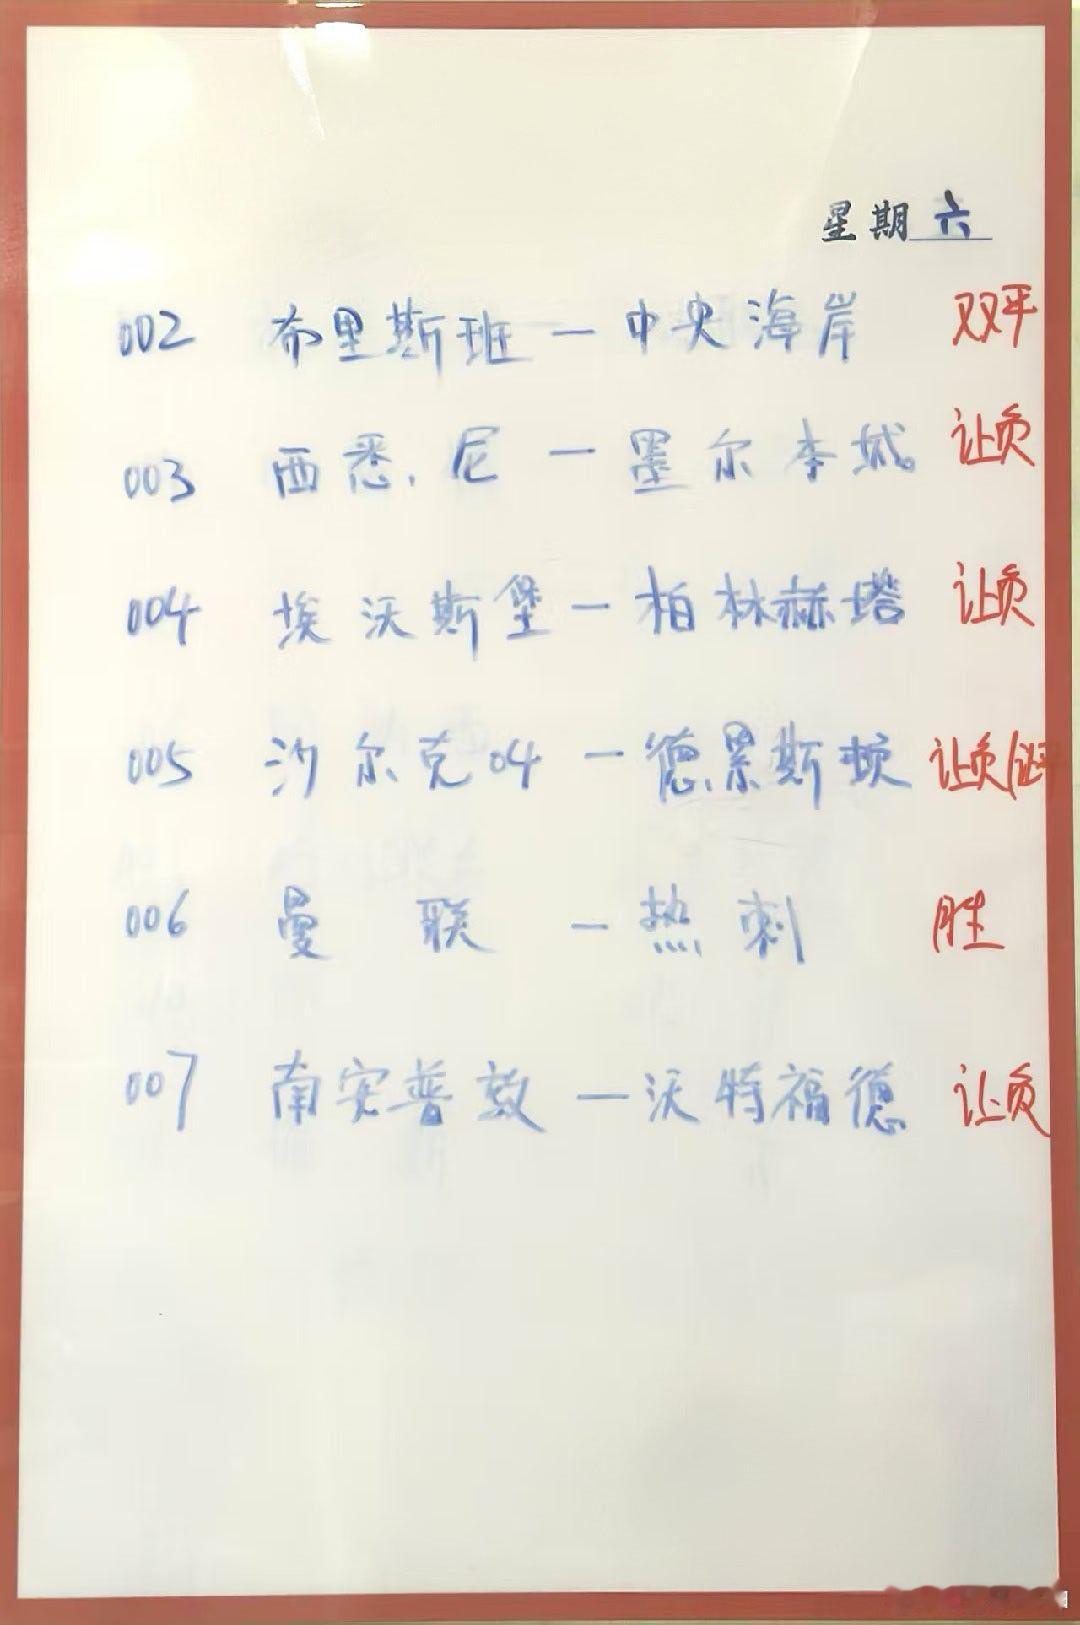 星期六
002 布里斯班 — 中央海岸 双平
003 西悉尼 — 墨尔本城 让负
004 埃沃斯堡 — 柏林赫塔 让负
005 沙尔克04 — 德累斯顿 让负/让平
006 曼联 — 热刺 胜
007 南安普敦 — 沃特福德 让负